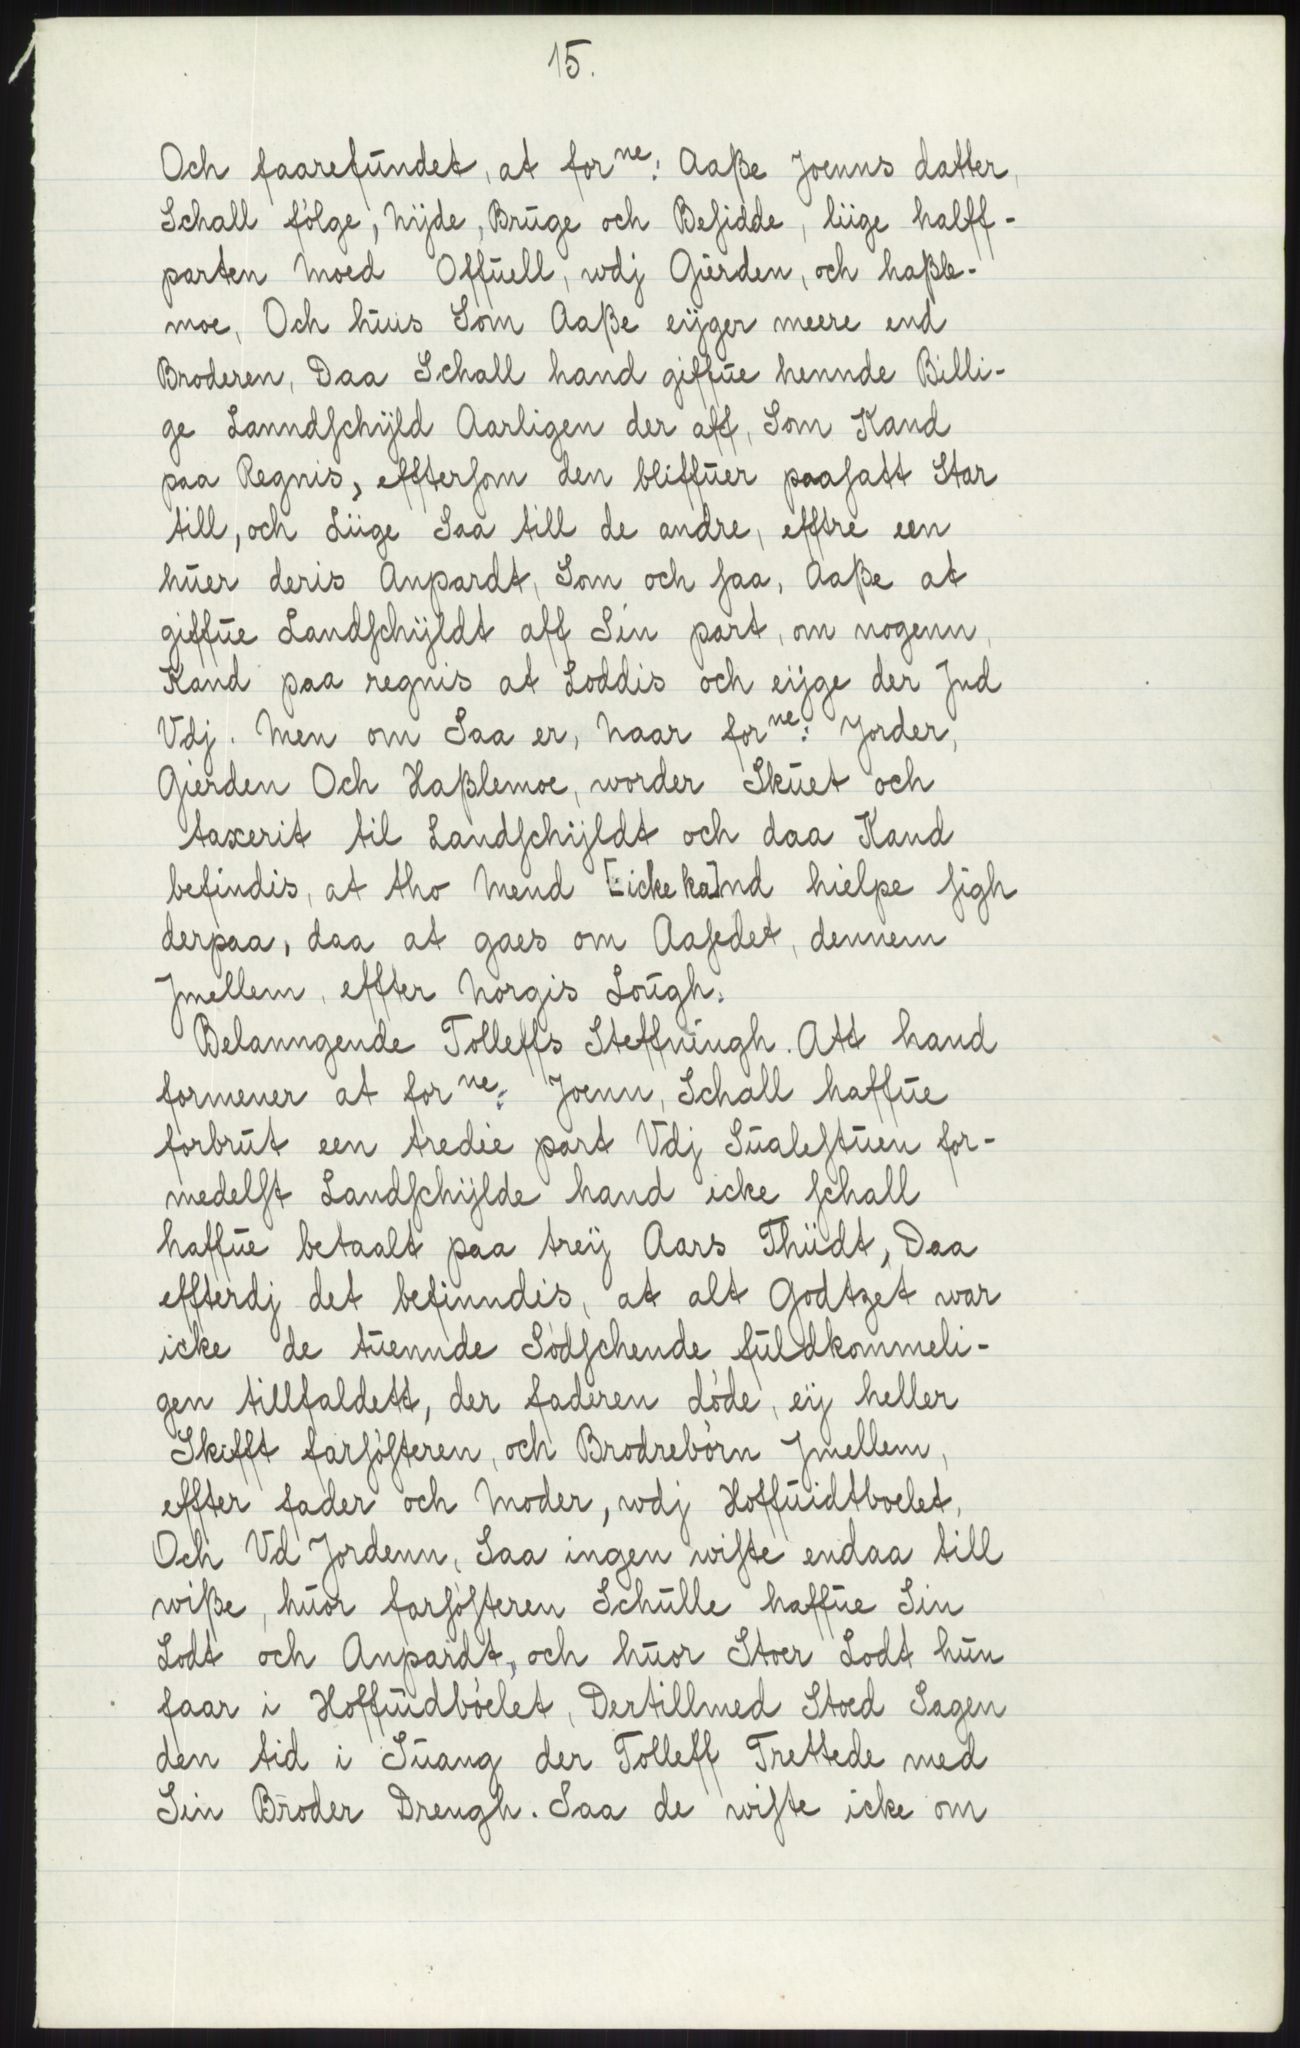 15.
Och faarefundet, at for ne: Aaße Joenns datter,
Schall følge, Nÿde, Bruge och Besidde, liige halff-
parten moed Offuell, wdj Gierden, och haßle-
moe, Och huus Som Aaße eÿger meere end
Broderen, Daa Schall hand giffue hennde Billi-
ge Lanndschÿld Aarligen der aff, Som Kand
paa Regnis, efftersom den bliffuer paasatt Star
till, och Liige Saa till de andre, efftre een
huer deris Anpardt, Som och saa, Aaße at
giffue Landschÿldt aff Sin part, om nogenn,
Kand paa regnis at Loddis och eÿge der Jnd
Vdj. Men om Saa er, Naar for ne: Jorder,
Gierden Och Haßlemoe, worder Skuet och
taxerit til Landschÿldt och daa Kand
befindis, at tho Mend [icke ka]nd hielpe sigh
derpaa, daa at gaes om Aasedet, dennem
Jmellem, effter Norgis Lough.
Belanngende Tolleffs Steffningh. Att hand
formener at for ne: Joenn, Schall haffue
forbrut een tredie part Vdj Sualestuen for-
medelst Landschÿlde hand icke schall
haffue betaalt paa treÿ Aars Thiidt, Daa
effterdj det befinndis, at alt Godtzet war
icke de tuennde Sødschende fuldkommeli-
gen tillfaldett, der faderen døde, eÿ heller
Skifft farsøsteren, och Brodrebørn Jmellem,
effter fader och Moder, wdj Hoffuidtboelet,
Och Vd Jordenn, Saa ingen wiste endaa till
wiße, huor farsøsteren Schulle haffue Sin
Lodt och Anpardt, och huor Stoer Lodt hun
faar i Hoffuidbøelet, Dertillmed Stoed Sagen
den tid i Suang der Tolleff Trettede med
Sin Broder Drengh. Saa de wiste icke om